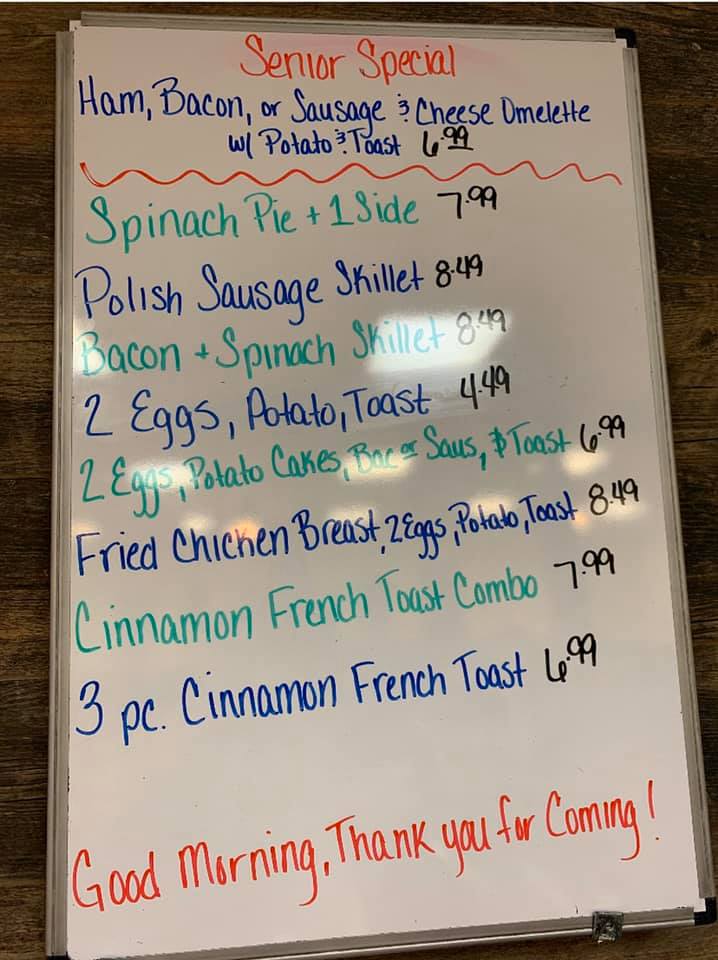 Senior Special
Ham, Bacon, or Sausage & Cheese Omelette
w/ Potato & Toast 6.99
Spinach Pie + 1 Side 7.99
Polish Sausage Skillet 8.49
Bacon + Spinach Skillet 8.49
2 Eggs, Potato, Toast 4.49
2 Eggs, Potato Cakes, Bac or Saus, & Toast 6.99
Fried Chicken Breast, 2 Eggs, Potato, Toast 8.49
Cinnamon French Toast Combo 7.99
3 pc. Cinnamon French Toast 6.99
Good Morning, Thank you for Coming!